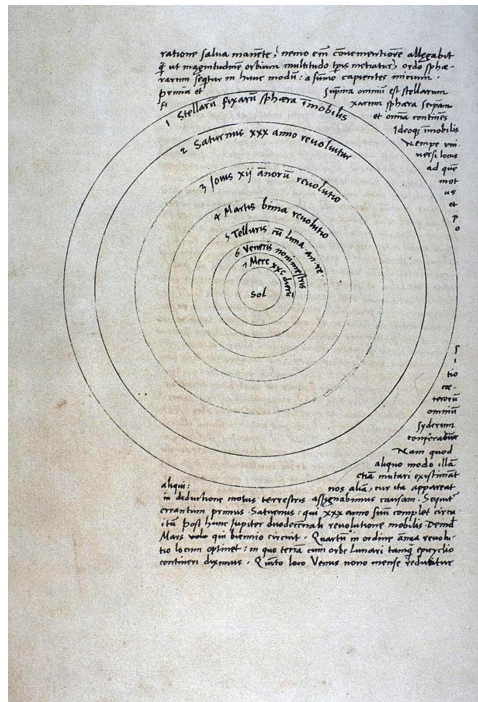 ratione salua manẽte, nemo em̃ conuenientiore allegabit
q̃ ut magnitudinẽ orbium multitudo tp̃is metiatur, ordo sphæ-
rarum sequitur in hunc modũ: a sũmo capientes initium.
prima et suprema omniũ est stellarum
fi xarum sphæra seipam
et omnia continẽs
Ideoq; ĩmobilis
nempe vni-
uersi locus
ad quẽ
mot
us
et
p
o
1 Stellarũ fixarũ sphæra ĩmobilis
2 Saturnus xxx anno reuoluitur
3 Iouis xij annorũ reuolutio
4 Martis bima reuolutio
5 Telluris cũ Luna an. re
6 Veneris nonimestris
7 Merc xxc dierũ
Sol
s
i
tio
cæ-
terorũ
omniũ
syderum
conferatur
Nam quod
aliquo modo illã
etiã mutari existimãt
aliqui: nos aliã, cur ita appareat
in deductione motus terrestris assignabimus causam. Sequit̃
errantium primus Saturnus: qui xxx anno suũ complet circu
itũ post hunc Iupiter duodecennali reuolutione mobilis Deinde
Mars qui biennio circuit. Quartũ in ordine annua reuolu-
tio locum optinet: in quo terrã cum orbe Lunari tamq̃ epicyclo
contineri diximus. Quinto loco Venus nono mense reducitur